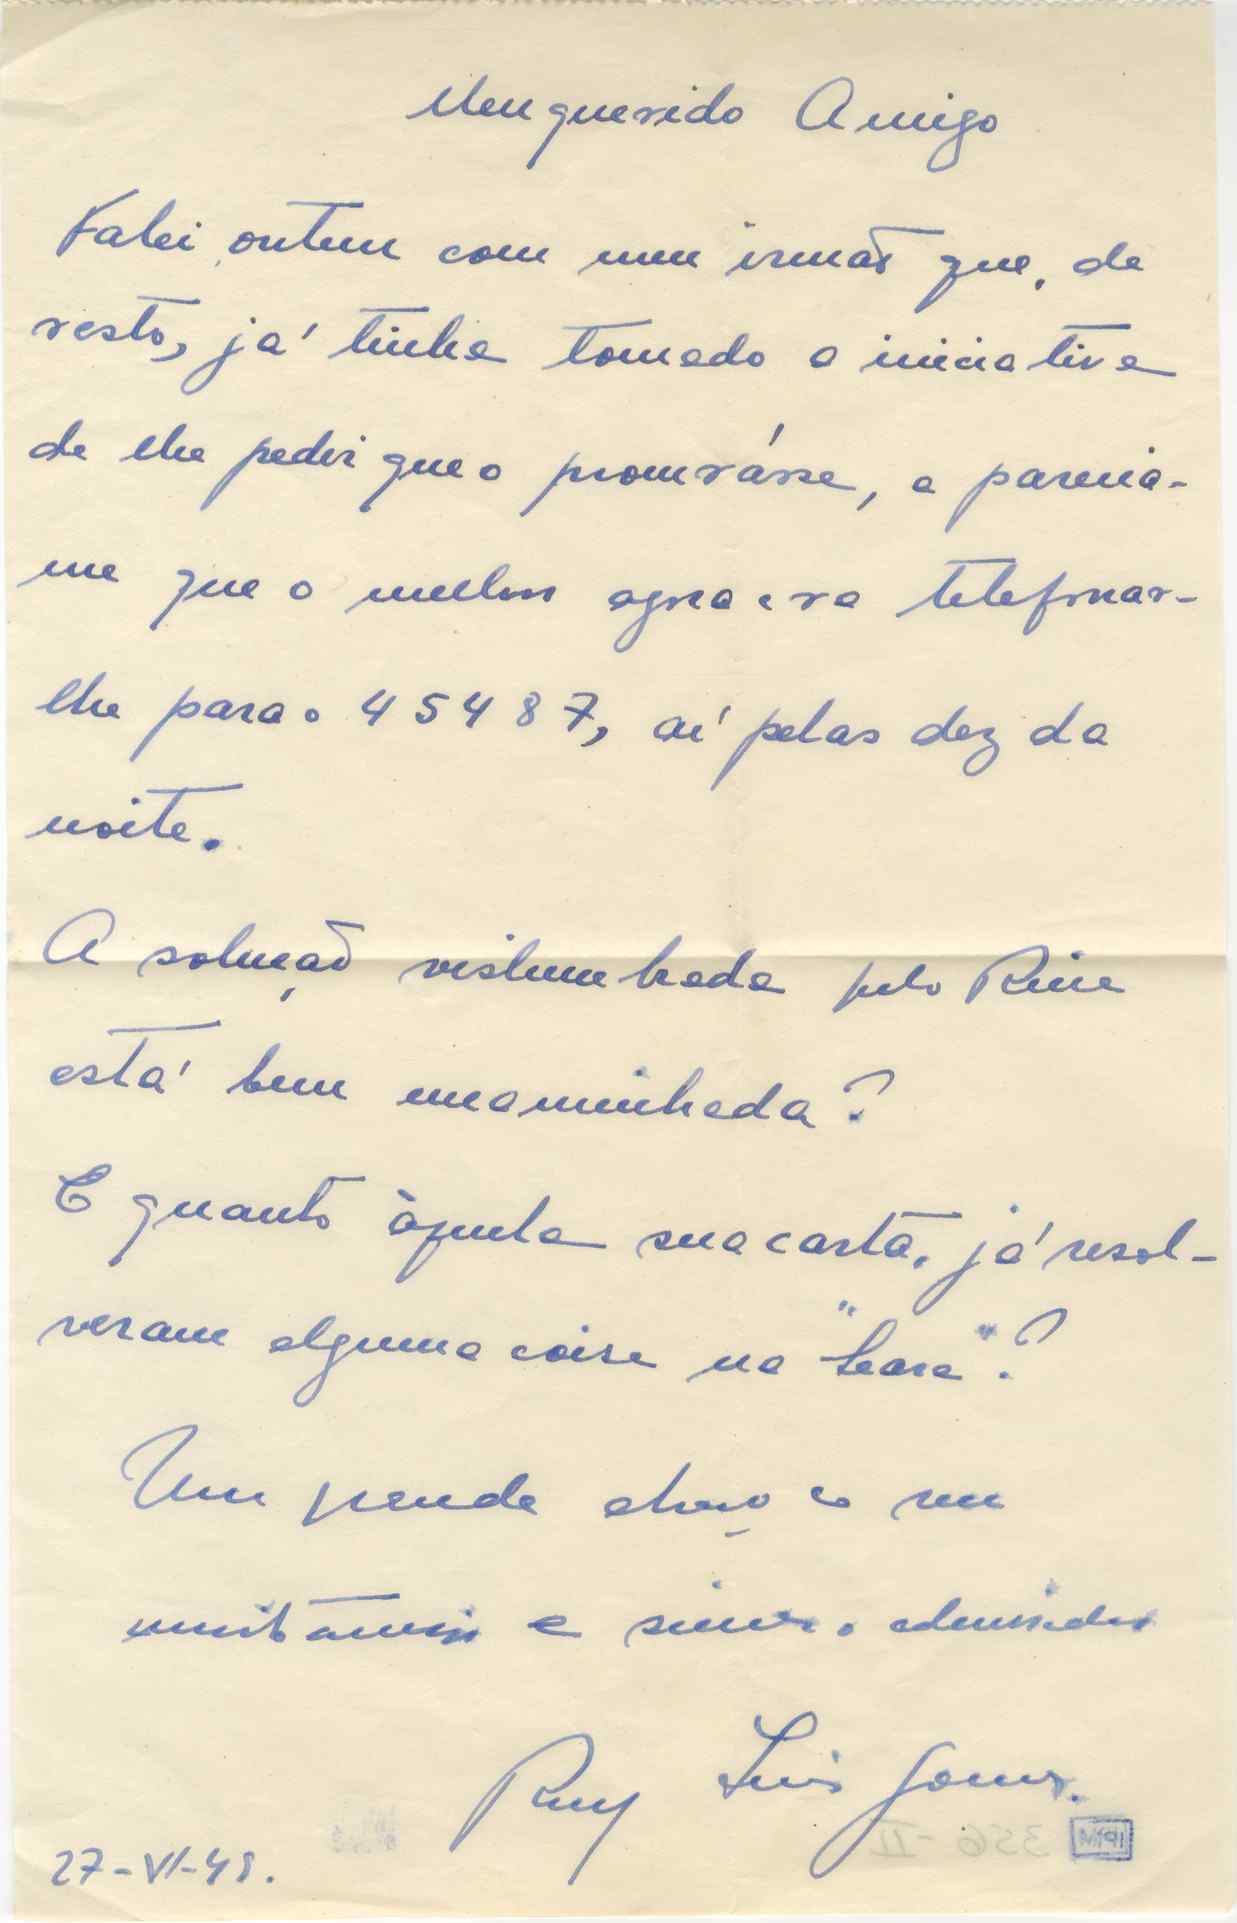 Meu querido Amigo
Falei ontem com meu irmão que, de
resto, já tinha tomado a iniciativa
de lhe pedir que o procurásse, e parecia-
me que o melhor agora era telefonar-
lhe para o 45487, aí pelas dez da
noite.
A solução vislumbrada pelo
está bem encaminhada?
E quanto àquela sua carta, já resol-
veram alguma coisa na "Seara"?
Um grande abraço do seu
muito amigo e sincero admirador
Ruy Luis Gomes.
27-VI-48.
356-II